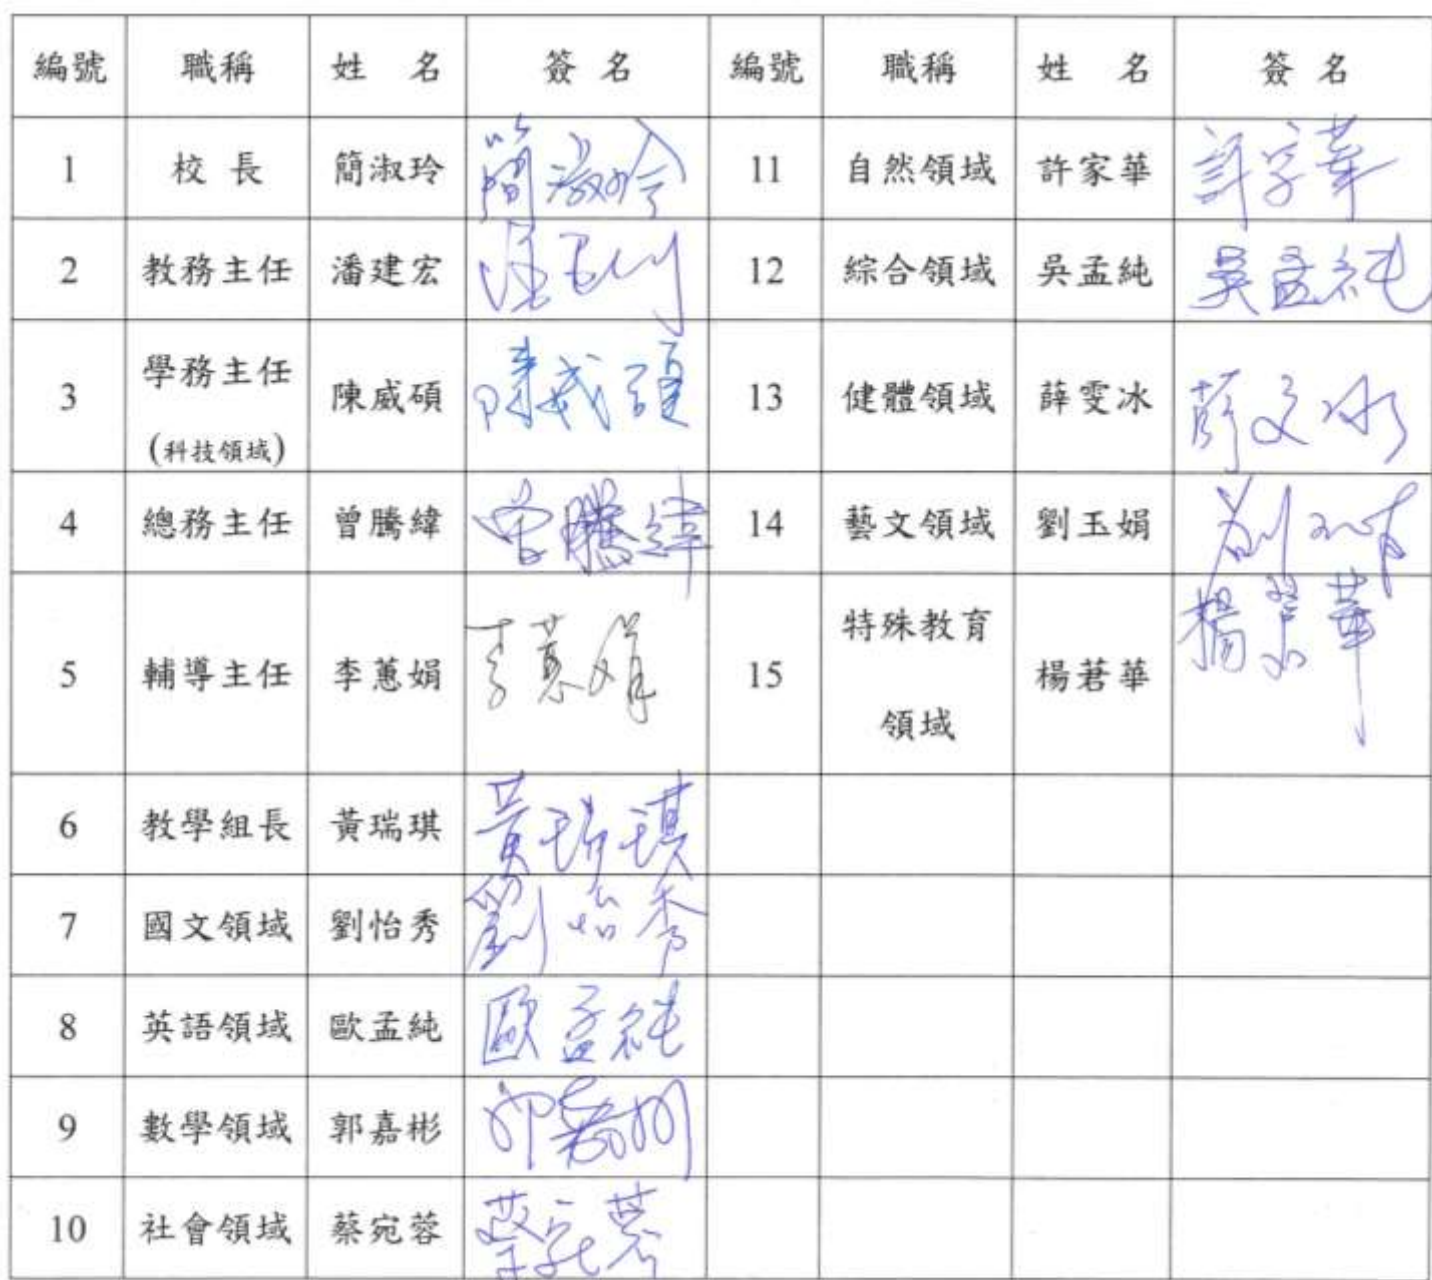 編號 職稱 姓 名 簽 名 編號 職稱 姓 名 簽 名
1 校 長 簡淑玲 簡淑玲 11 自然領域 許家華 許家華
2 教務主任 潘建宏 12 綜合領域 吳孟純 吳孟純
3 學務主任 (科技領域) 陳威碩 陳威碩 13 健體領域 薛雯冰 薛文冰
4 總務主任 曾騰緯 曾騰緯 14 藝文領域 劉玉娟
5 輔導主任 李蕙娟 李蕙娟 15 特殊教育 領域 楊莙華 楊莙華
6 教學組長 黃瑞琪 黃瑞琪
7 國文領域 劉怡秀 劉怡秀
8 英語領域 歐孟純 歐孟純
9 數學領域 郭嘉彬
10 社會領域 蔡宛蓉 蔡宛蓉